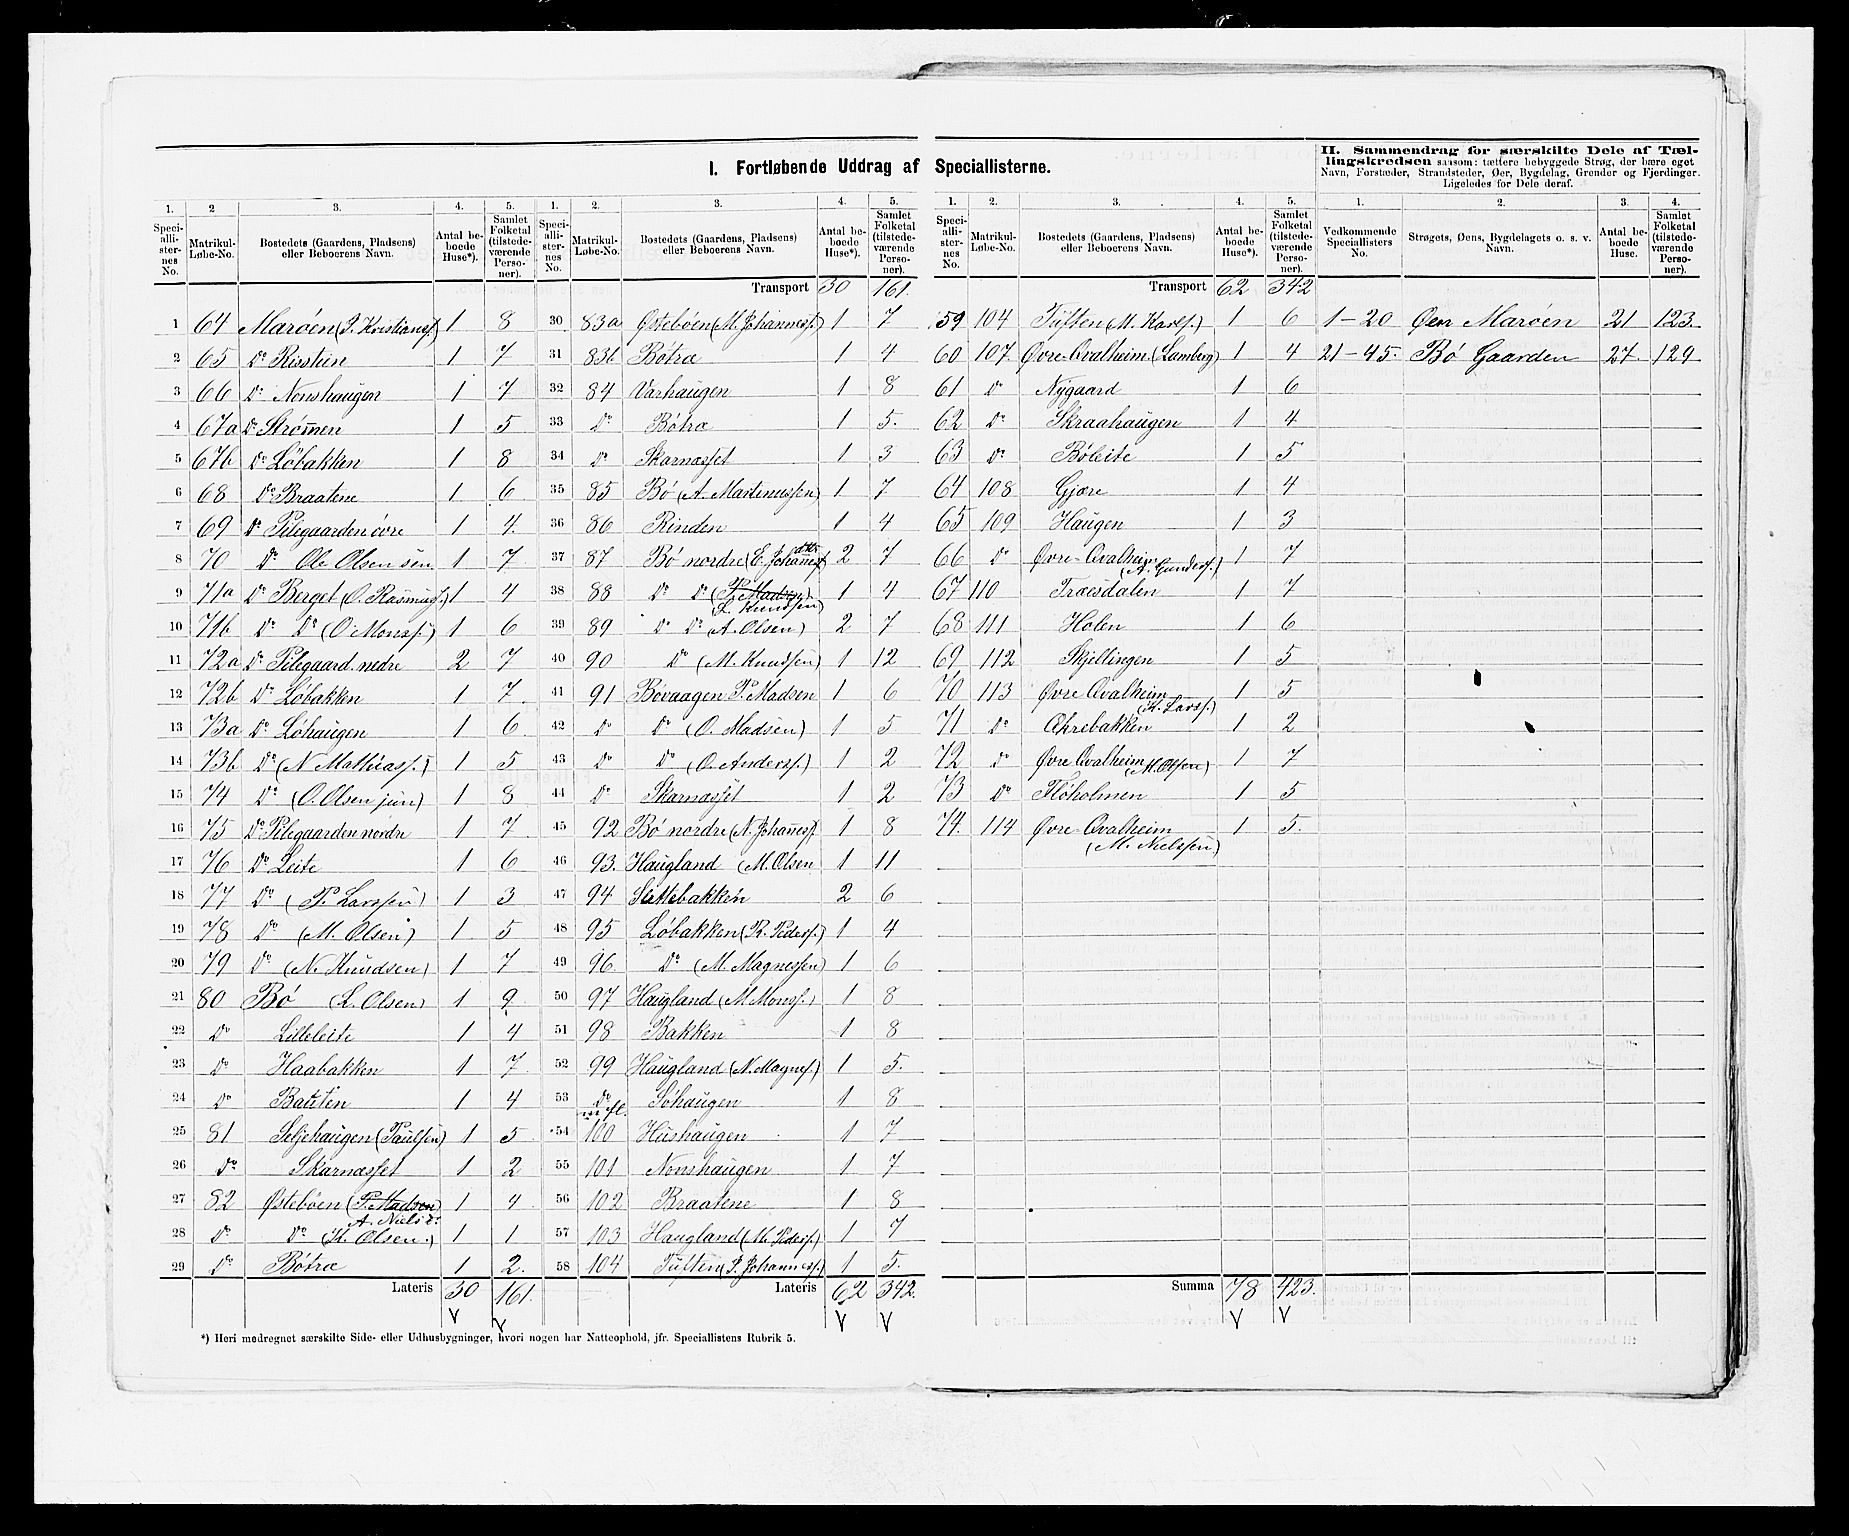 I. Fortløbende Uddrag af Speciallisterne.
II. Sammendrag for særskilte Dele af Tællingskredsen saasom: tættere bebyggede Strøg, der bære eget Navn, Forstæder, Strandsteder, Øer, Bygdelag, Grender og Fjerdinger. Ligeledes for Dele deraf.
1. 2 3. 4. 5. 1. 2. 3. 4. 5. 1. 2. 3. 4. 5. 1. 2. 3. 4.
Speciallisternes No. Matrikul-Løbe-No. Bostedets (Gaardens, Pladsens) eller Beboerens Navn. Antal beboede Huse*). Samlet Folketal (tilstedeværende Personer).
Speciallisternes No. Matrikul-Løbe-No. Bostedets (Gaardens, Pladsens) eller Beboerens Navn. Antal beboede Huse*). Samlet Folketal (tilstedeværende Personer).
Speciallisternes No. Matrikul-Løbe-No. Bostedets (Gaardens, Pladsens) eller Beboerens Navn. Antal beboede Huse*). Samlet Folketal (tilstedeværende Personer).
Vedkommende Speciallisters No. Strøgets, Øens, Bygdelagets o. s. v. Navn. Antal beboede Huse. Samlet Folketal (tilstedeværende Personer).
1 64 Marøen (P. Kristianss.) 1 8
2 65 Do Risstien 1 7
3 66 Do Nonshaugen 1 7
4 67a Do Strømmen 1 5
5 67b Do Løbakken 1 8
6 68 Do Braatene 1 6
7 69 Do Pilegaarden øvre 1 4.
8 70 Do Ole Olsen sen 1 7
9 71a Do Berget (O. Rasmuss.) 1 4
10 71b Do Do (O. Monss.) 1 6
11 72a Do Pilegaard. nedre 2 7
12 72b Do Løbakken 1 7.
13 73a Do Løhaugen 1 6.
14 73b Do (N. Mathiass.) 1 5
15 74 Do (O. Olsen jun) 1 8
16 75 Do Pilegaarden nørdre 1 7
17 76 Do Leite 1 6
18 77 Do (P. Larssen) 1 3
19 78 Do (M. Olsen) 1 5
20 79 Do (N. Knudsen) 1 7
21 80 Bø (L. Olsen) 1 9.
22 Do Lilleleite 1 4
23 Do Haabakken 1 7.
24 Do Bauten 1 4
25 81 Seljehaugen (Paulsen) 1 5
26 Do Skarnasset 1 2
27 82 Østebøen (P. Madsen) 1 4
A. Niels.
28 Do Do (K. Olsen.) 1 1
29 Do Bøtræ 1 2.
Lateris 30 161.
Transport 30 161.
30 83a Østebøen (M. Johanness.) 1 7
31 83b Bøtræ 1 4
32 84 Varhaugen 1 8
33 Do Bøtræ 1 5.
34 Do Skarnasset 1 3
35 85 Bø (A. Martinussen) 1 7
36 86 Rinden 1 4
37 87 Bø nordre (E. Johannesdtr 2 7
38 88 Do Do (P. Madsen) 1 4
L. Knudsen)
39 89 Do Do (A. Olsen) 2 7
40 90 Do (M. Knudsen) 1 12
41 91 Bøvaagen P. Madsen 1 6
42 Do Do (O. Madsen) 1 5
43 Do Do (O. Anderss.) 1 2
44 Do Skarnasset 1 2
45 92 Bø nordre (N. Johanness. 1 8
46 93. Haugland (M. Olsen 1 11
47 94 Slettebakken 2 6
48 95 Løbakken (R. Peders.) 1 4
49 96. Do (M. Magnessen) 1 6
50 97 Haugland (M. Monss.) 1 8
51 98 Bakken 1 8
52 99 Haugland (N. Magnes.) 1 5.
53 Do m. fl. Søhaugen 1 8
54 100 Hushaugen 1 7
55 101 Nonshaugen 1 7
56 102 Braatene 1 8
57 103 Haugland (M. Peders.) 1 7
58 104 Tuften (P. Johanness.) 1 5.
Lateris 62 342.
Transport 62 342
59 104 Tuften (M. Karls.) 1 6
60 107. Øvre-Qvalheim (Lamberg) 1 4
61 Do Nygaard 1 6
62 Do Skraahaugen 1 4.
63 Do Bøleite 1 5
64 108 Gjøre 1 4
65 109 Haugen 1 3
66 Do Øvre-Qvalheim (A. Gunders.) 1 7
67 110 Troesdalen 1 7
68 111 Holen 1 6
69 112 Skjellingen 1 5
70 113 Øvre Qvalheim (K. Larss.) 1 5
71 Do Ækrebakken 1 2
72 Do Øvre Qvalheim (M. Olsen) 1 7
73 Do Fløholmen 1 5
74. 114 Øvre-Qvalheim (M. Nielssen) 1 5.
Summa 78 423.
1-20 Øen Marøen 21 123.
21-45. Bø Gaarden 27. 129
V V V V V V
*) Heri medregnet særskilte Side- eller Udhusbygninger, hvori nogen har Natteophold, jfr. Speciallistens Rubrik 5.